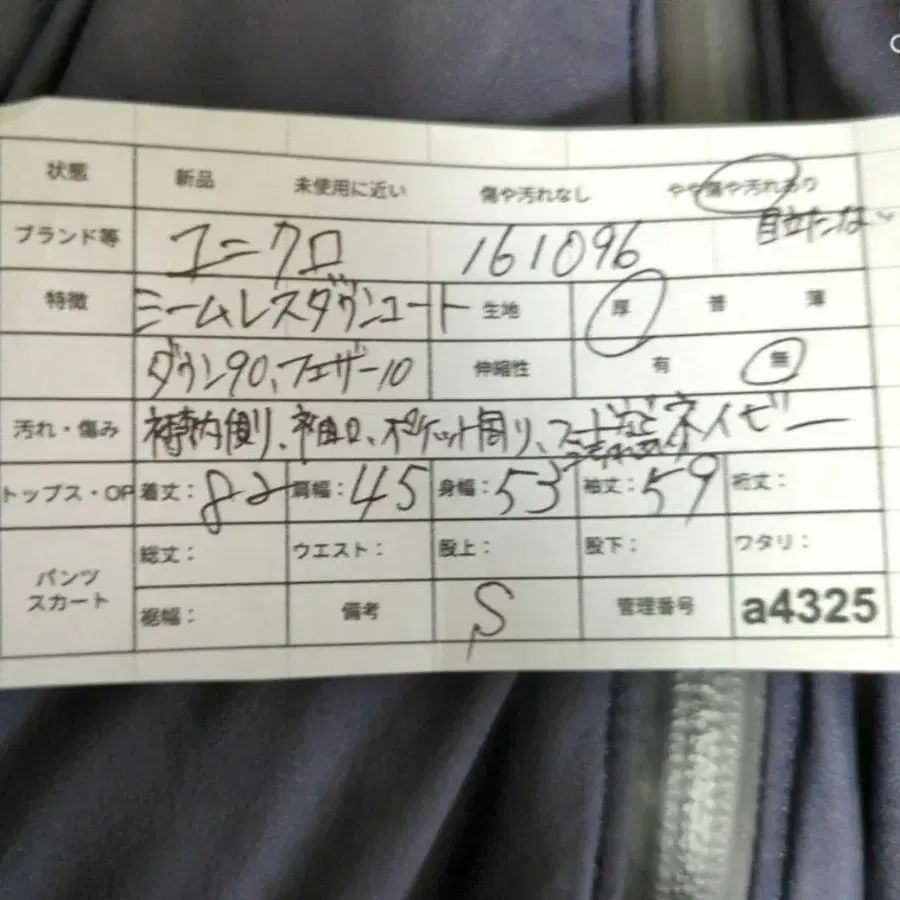 状態 新品 未使用に近い 傷や汚れなし やや傷や汚れあり
目立たない
ブランド等 ユニクロ 161096
特徴 シームレスダウンコート 生地 厚 普 薄
ダウン90、フェザー10 伸縮性 有 無
汚れ・傷み 襟内側り、袖口、ポケット周り、フードなど ネイビー
トップス・OP 着丈: 82 肩幅: 45 身幅: 53 袖丈: 59 裄丈:
パンツ 総丈: ウエスト: 股上: 股下: ワタリ:
スカート 裾幅: 備考 S 管理番号 a4325